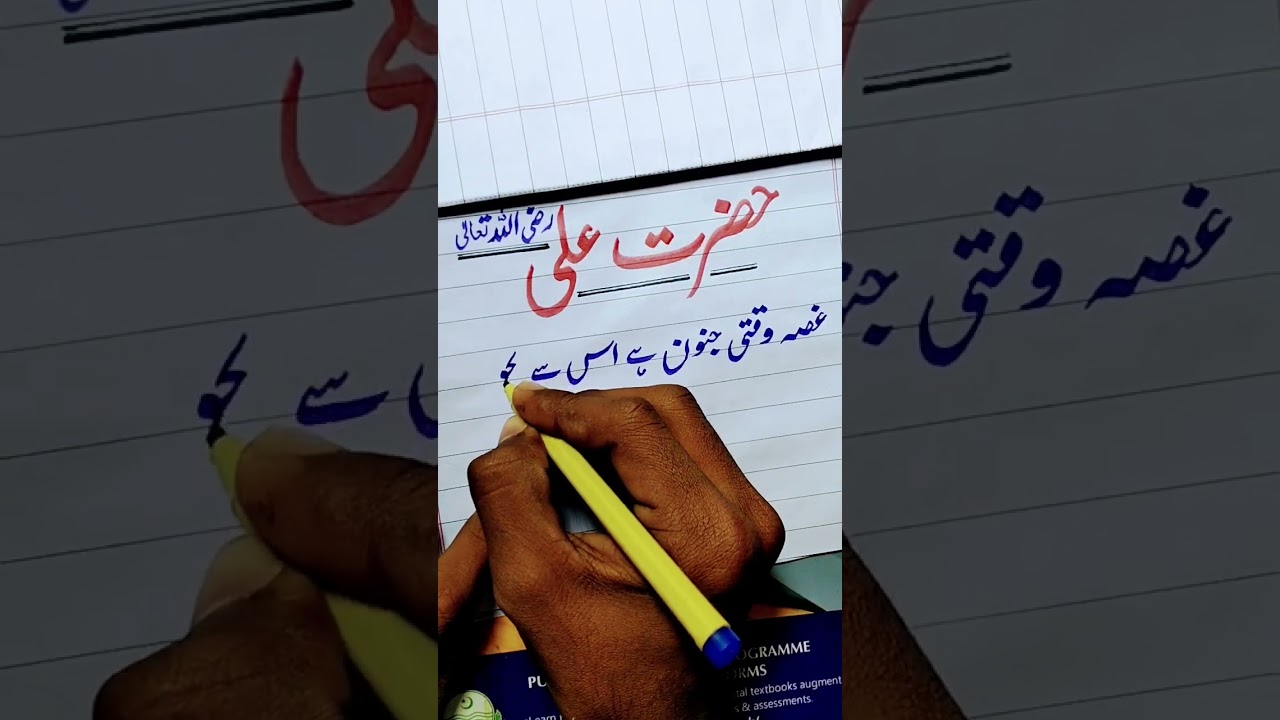 حضرت علی رضی اللہ تعالی
غصہ وقتی جنون ہے اس سے
PU
OGRAMME
ORMS
tal textbooks augment
s & assessments.